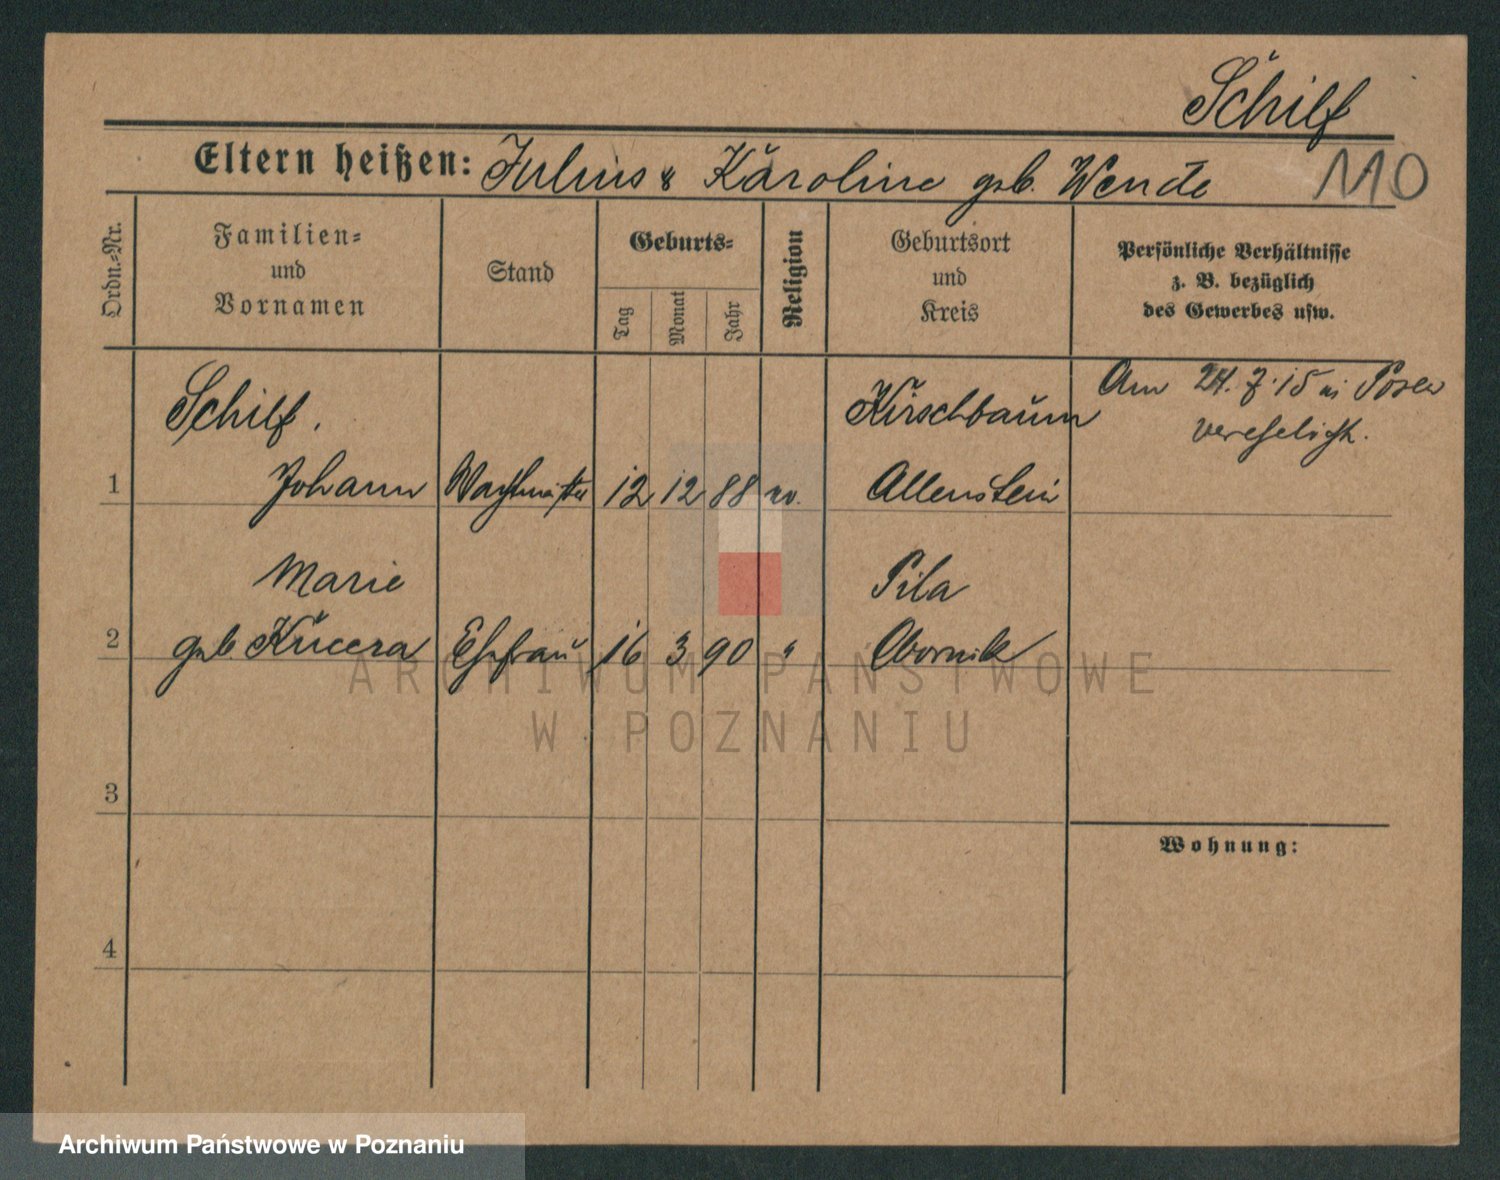 Schilf
Eltern heißen: Julius & Karoline geb. Wende
110
Ordn.-Nr.
Familien-
und
Vornamen
Stand
Geburts-
Tag
Monat
Jahr
Religion
Geburtsort
und
Kreis
Persönliche Verhältnisse
z. B. bezüglich
des Gewerbes usw.
Schilf.
Kirschbaum
Am 24.7.15 in Posen
verehelicht.
1 Johann Wachtmeister 12 12 88 Allenstein
Marie
Pila
2 geb. Kucera Ehefrau 16 3 90 " Obornik
ARCHIWUM PAŃSTWOWE
W POZNANIU
3
Wohnung:
4
Archiwum Państwowe w Poznaniu